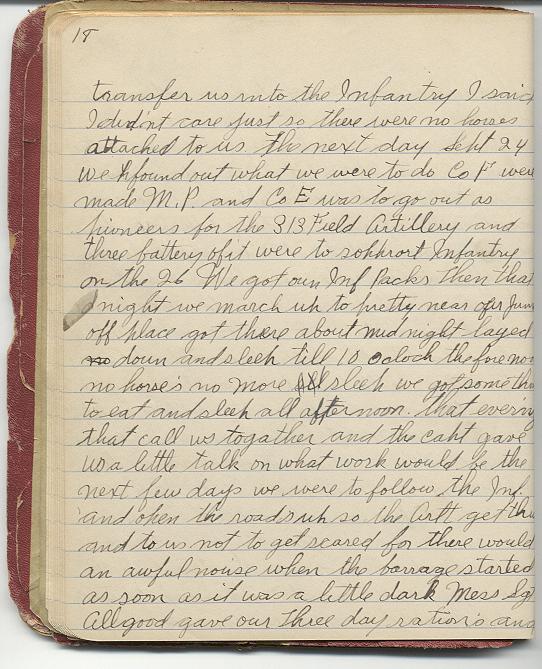 18
transfer us into the Infantry I said
I didn't care just so there were no horses
attached to us the next day Sept 24
we found out what we were to do Co F were
made M.P. and Co E was to go out as
pioneers for the 313 Field Artillery and
three battery of it were to sopport Infantry
on the 26 We got our Inf Packs then that
night we march up to pretty near our Jum
off place got there about mid night layed
doun and sleep till 10 oclock the fore noo
no horses no more sleep we got some th
to eat and sleep all afternoon. that evenin
that call us togather and the capt gave
us a little talk on what work would be the
next few days we were to follow the Inf.
and open the roads up so the Art. get thr
and to us not to get scared for there would
an awful noise when the barrage started
as soon as it was a little dark Mess Sgt
Allgood gave our three day rations and